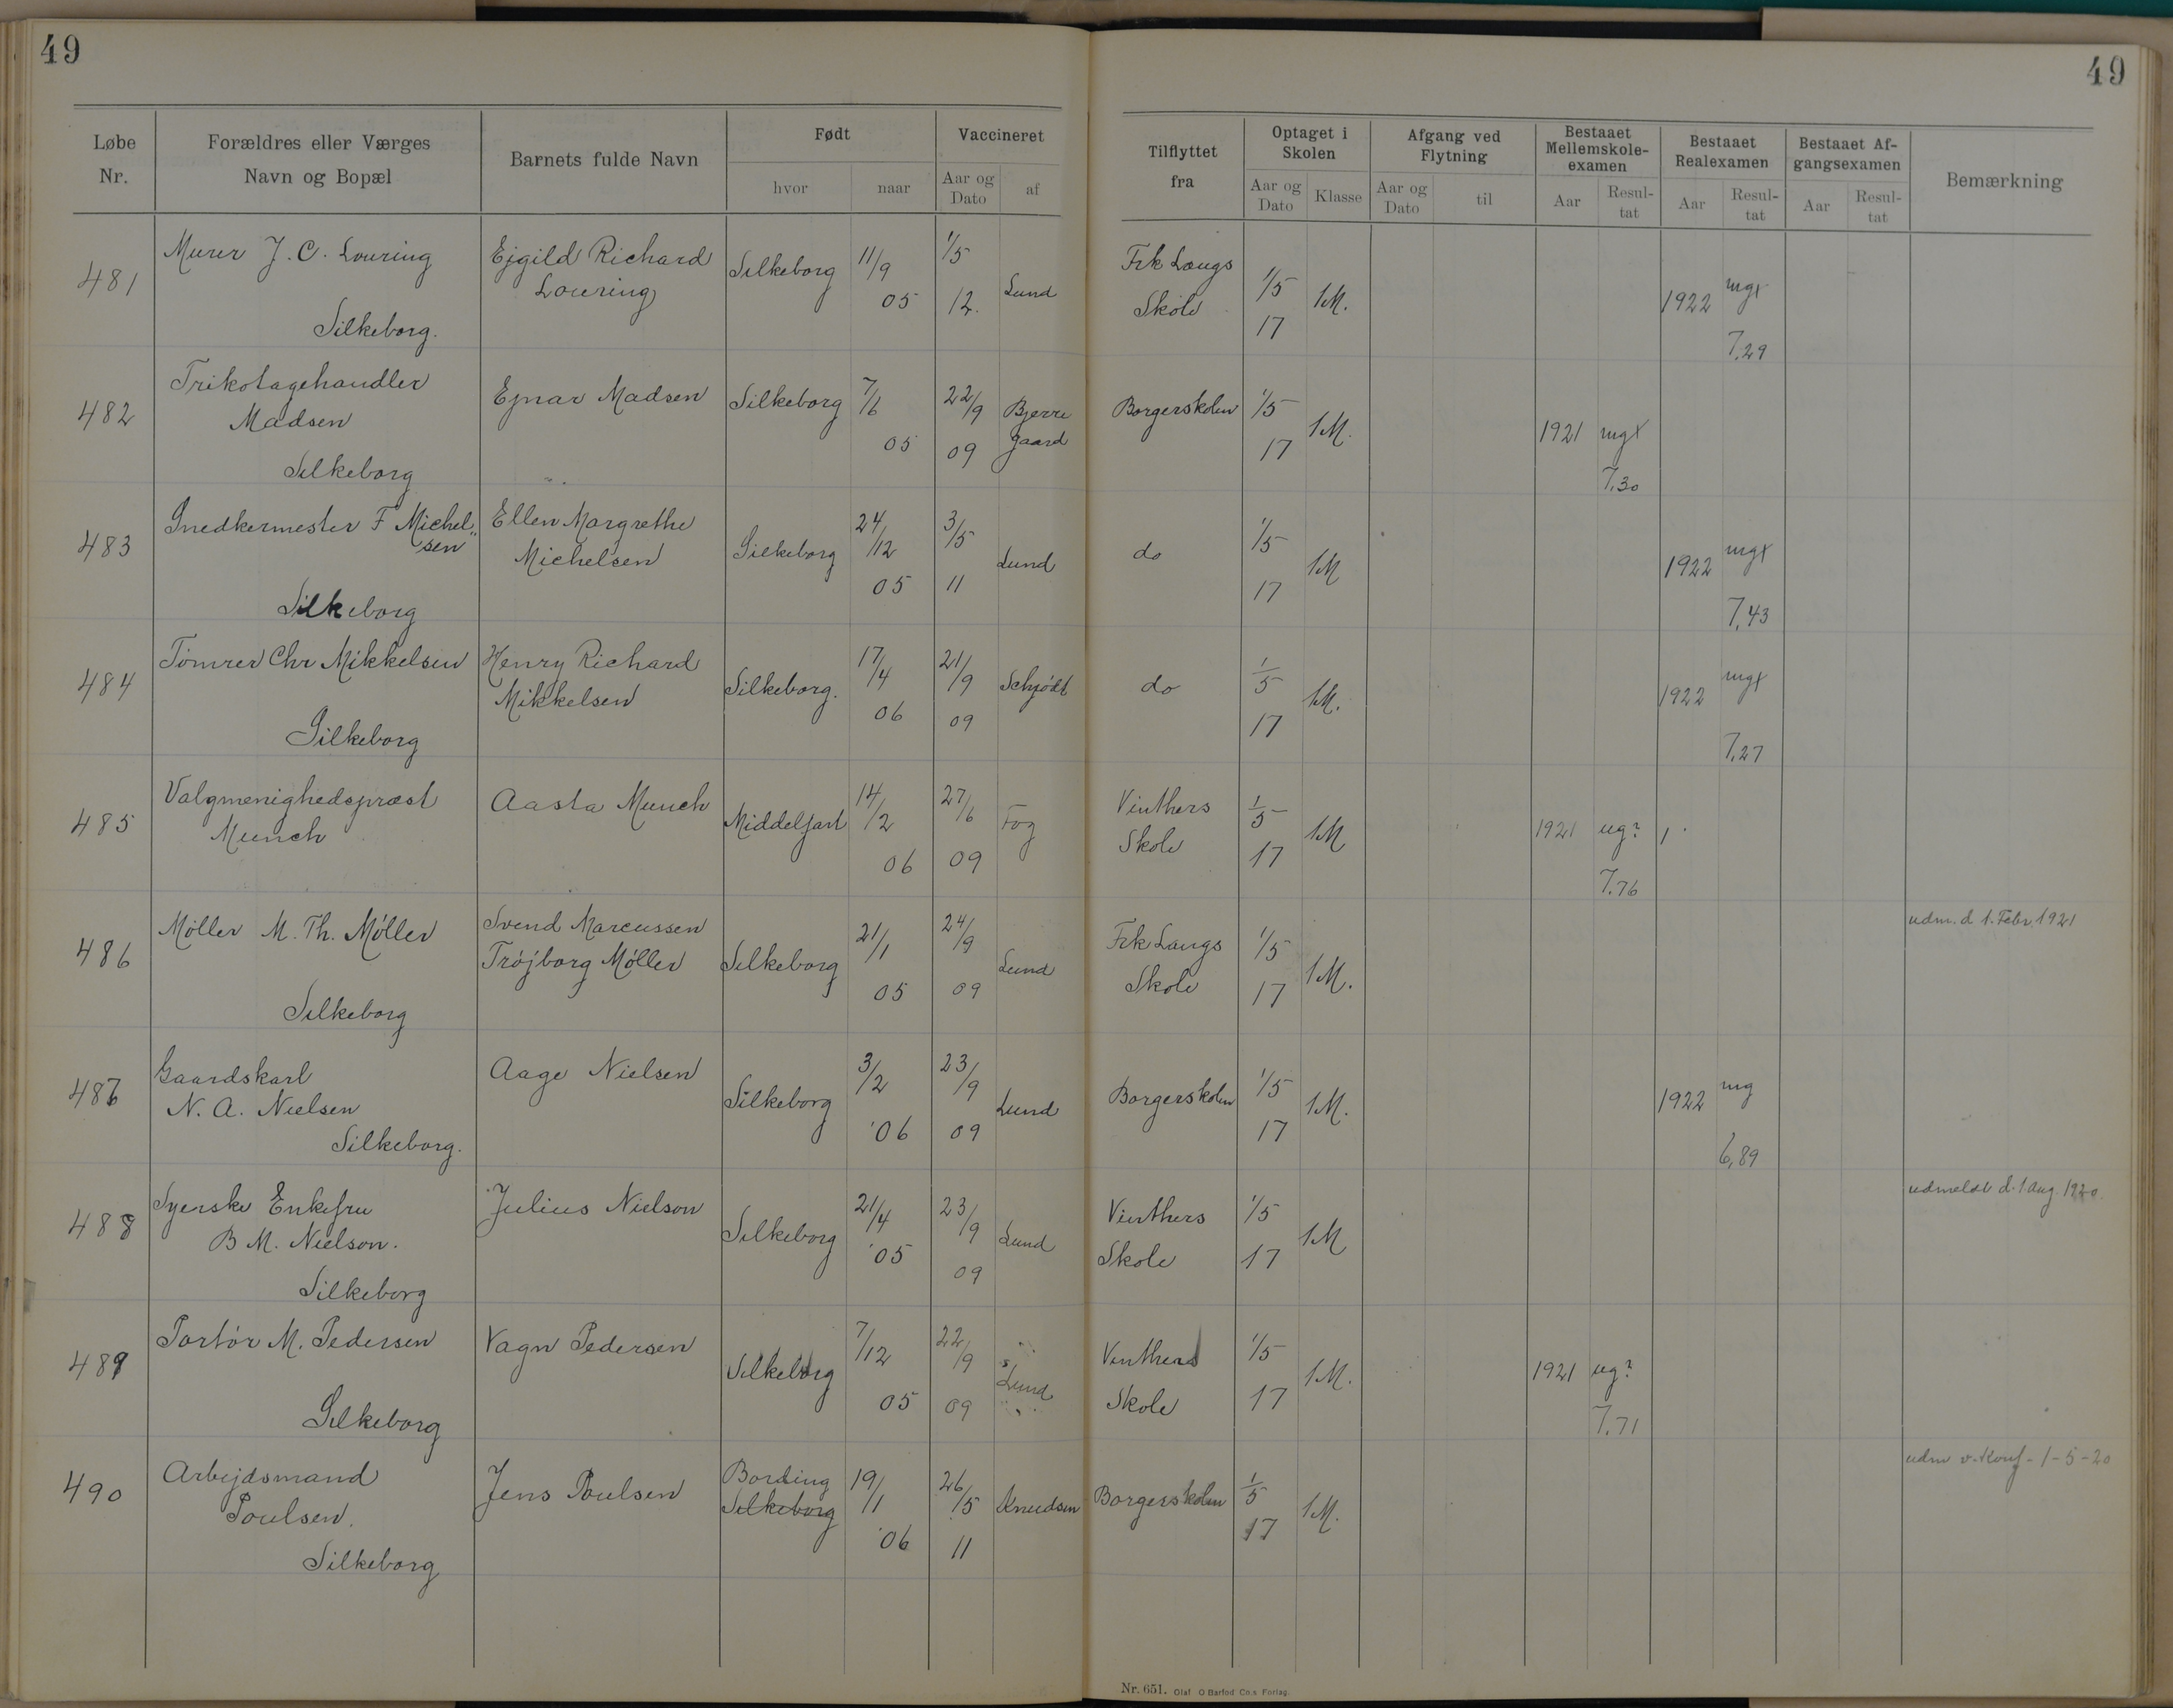 49
49
Løbe Nr.
Forældres eller Værges Navn og Bopæl
Barnets fulde Navn
Født
hvor
naar
Vaccineret
Aar og Dato
af
Tilflyttet fra
Optaget i Skolen
Aar og Dato
Klasse
Afgang ved Flytning
Aar og Dato
til
Bestaaet Mellemskole-examen
Aar
Resul-tat
Bestaaet Realexamen
Aar
Resul-tat
Bestaaet Af-gangsexamen
Aar
Resul-tat
Bemærkning
481 Murer J. C. Louring Silkeborg. Ejgild Richard Louring Silkeborg 11/9 05 1/5 12. Lund Frk Langs Skole 1/5 17 1M. 1922 mg+ 7,29
482 Trikotagehandler Madsen Silkeborg Ejnar Madsen Silkeborg 7/6 05 22/9 09 Bjerregaard Borgerskolen 1/5 17 1M. 1921 mg+ 7.30
483 Snedkermester F Michel„sen Silkeborg Ellen Margrethe Michelsen Silkeborg 24/12 05 3/5 11 Lund do 1/5 17 1M 1922 mg+ 7,43
484 Tömrer Chr Mikkelsen Silkeborg Henry Richard Mikkelsen Silkeborg. 17/4 06 21/9 09 Schjødt do 1/5 17 1M. 1922 mg+ 7,27
485 Valgmenighedspræst Munch Aasta Munch Middelfart 14/2 06 27/6 09 Fog Vinthers Skole 1/5 17 1M 1921 ug? 7.76
486 Möller M. Th. Möller Silkeborg Svend Marcussen Tröjborg Möller Silkeborg 21/1 05 24/9 09 Lund Frk Langs Skole 1/5 17 1M. udm. d 1. Febr 1921
487 Gaardskarl N. A. Nielsen Silkeborg. Aage Nielsen Silkeborg 3/2 '06 23/9 09 Lund Borgerskolen 1/5 17 1M. 1922 mg 6,89
488 Syerske Enkefru B M. Nielson. Silkeborg Julius Nielson Silkeborg 21/4 '05 23/9 09 Lund Vinthers Skole 1/5 17 1M udmeldt d. 1 Aug. 1920.
489 Portör M. Pedersen Silkeborg Vagn Pedersen Silkeborg 7/12 05 22/9 09 Lund Vinthers Skole 1/5 17 1M. 1921 ug? 7.71
490 Arbejdsmand Poulsen. Silkeborg Jens Poulsen Bording Silkeborg 19/1 '06 26/5 11 Knudsen Borgerskolen 1/5 17 1M. udm v. Konf - 1-5-20
Nr. 651. Olaf O Barfod Co.s Forlag.